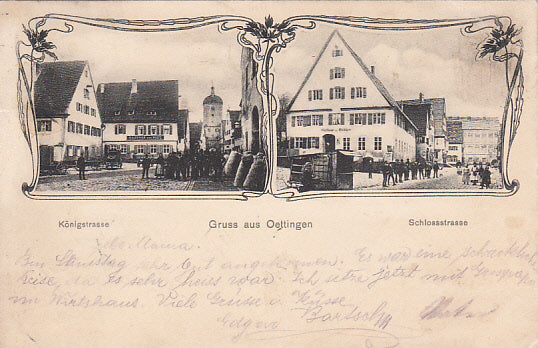 Königstrasse
Gruss aus Oettingen
Schlossstrasse
Mama.
Am Samstag sehr gut angekommen. Es war eine schreckliche
Reise, da es sehr heiss war. Ich sitze jetzt mit
im Wirtshaus. Viele Grüsse u. Küsse
Edgar